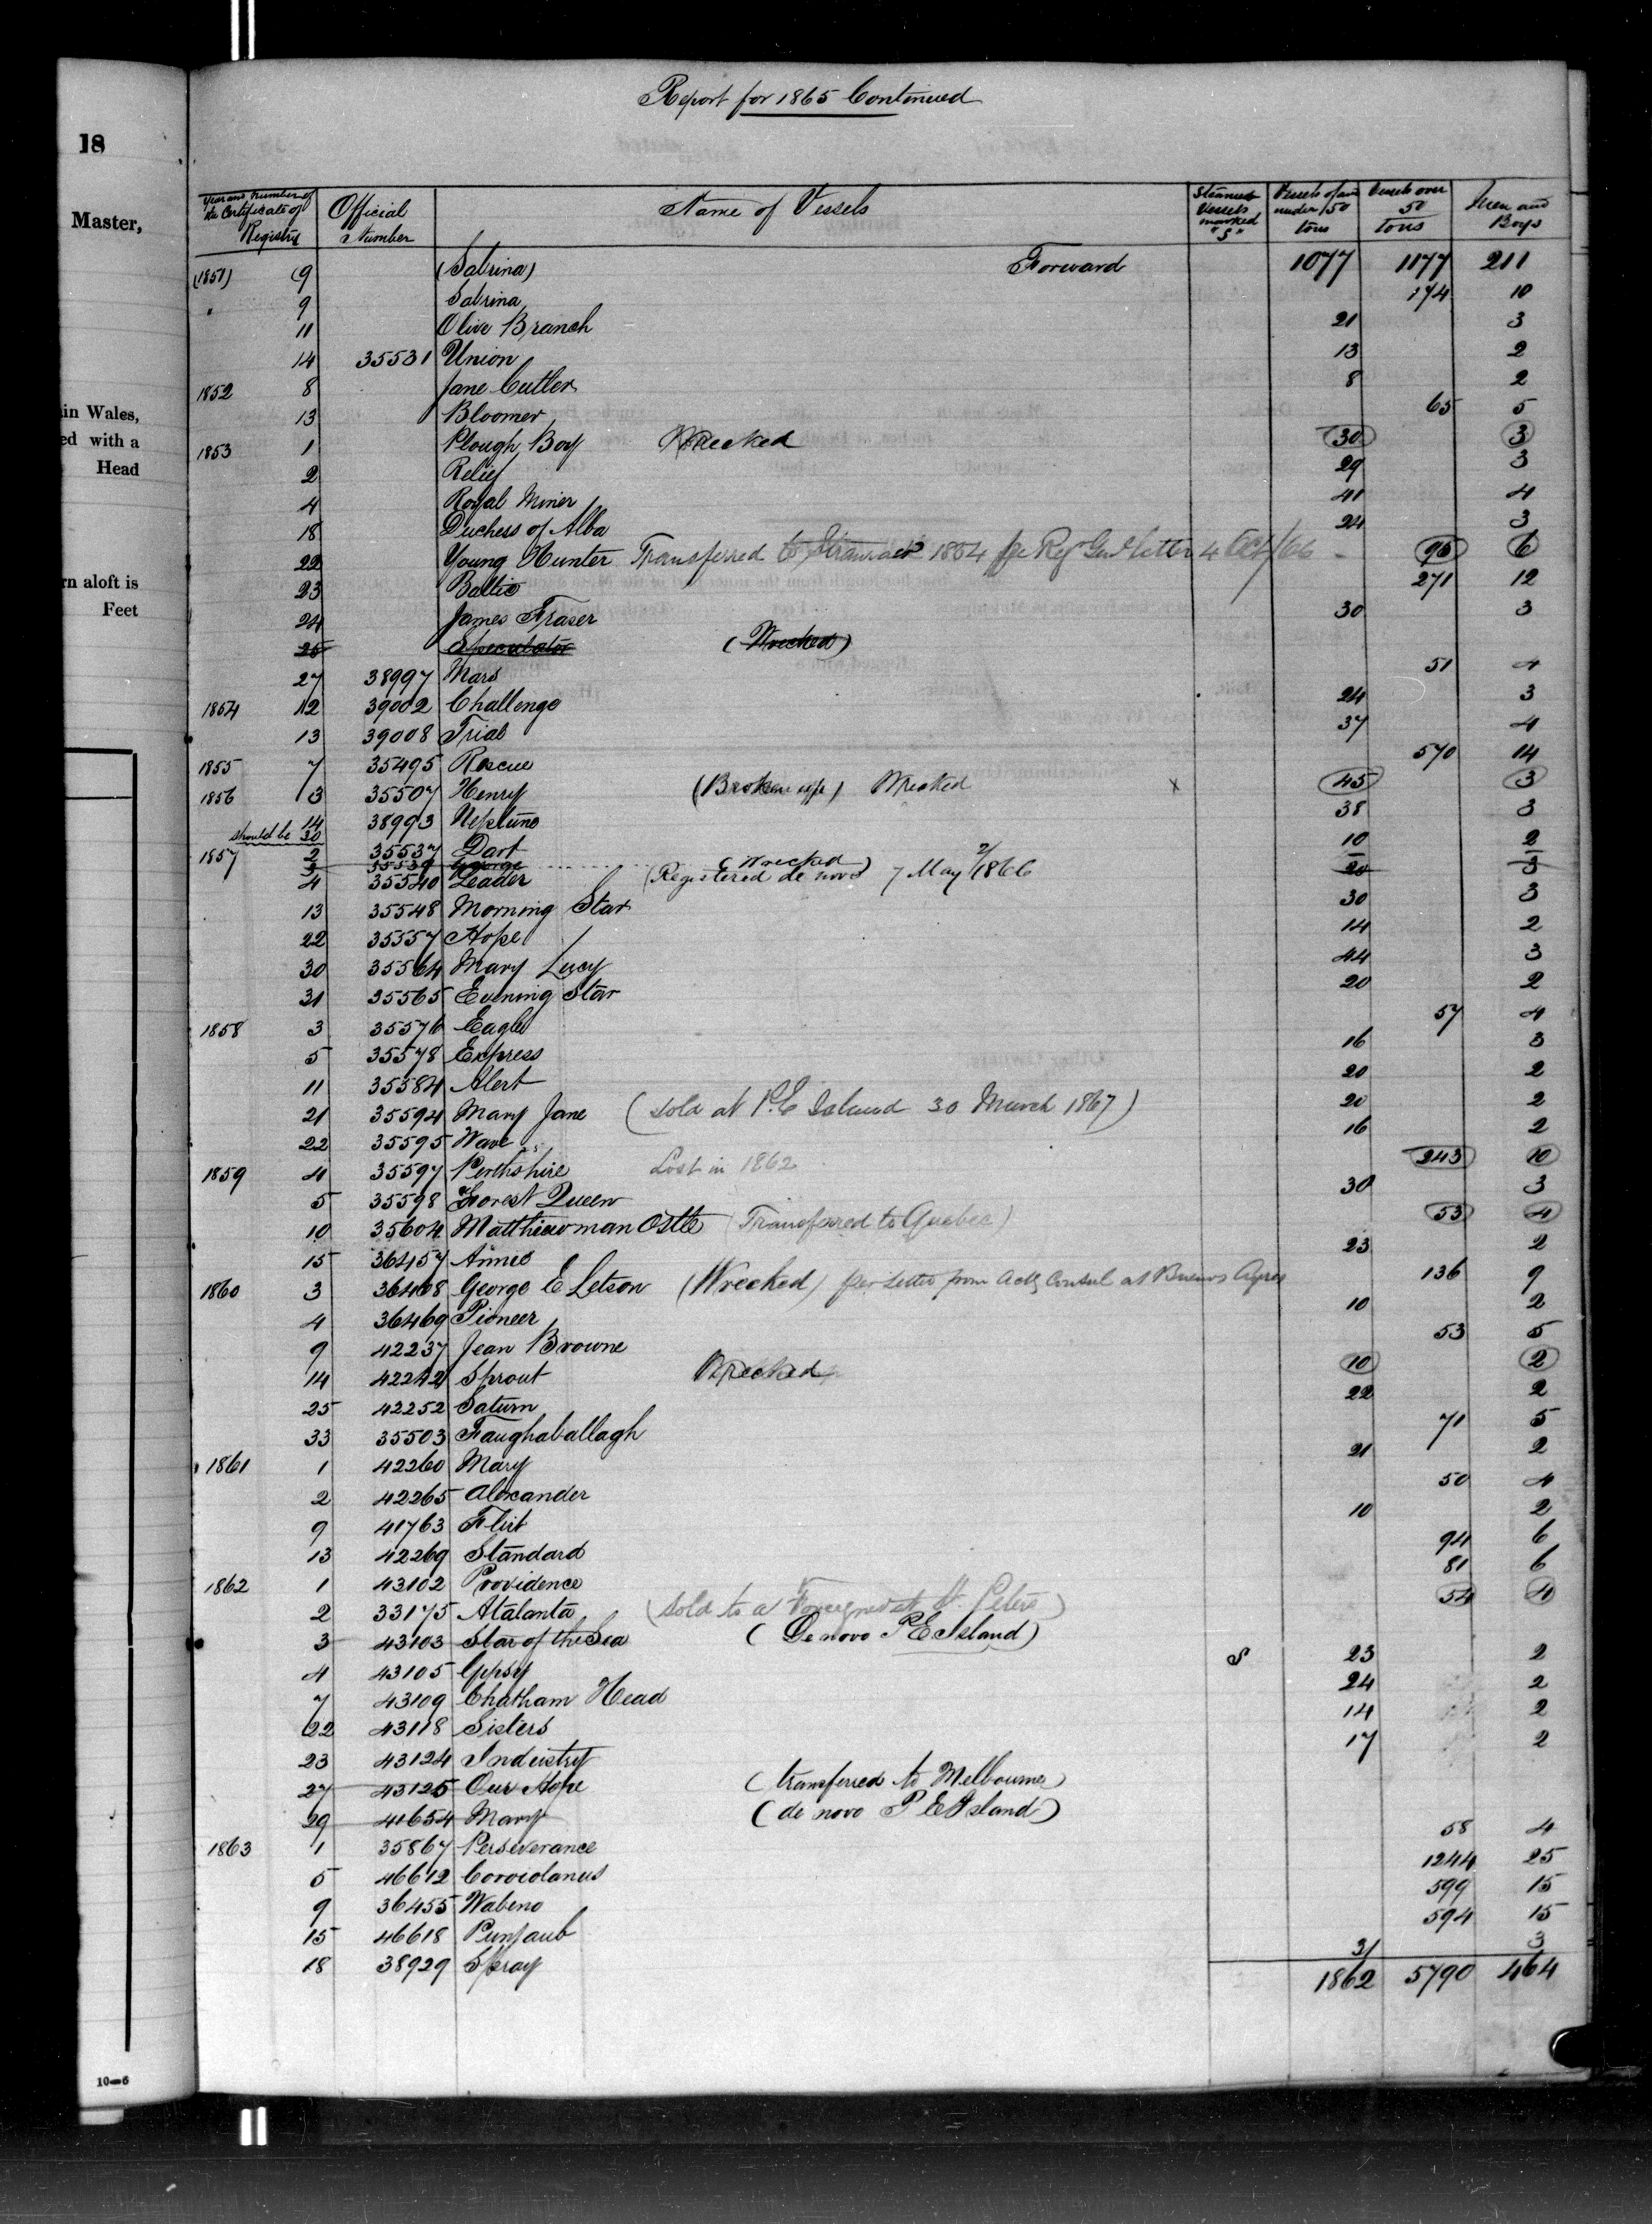 Report for 1865 Continued
18
Master,
in Wales,
ed with a
Head
rn aloft is
Feet
10—6
Year and Number of the Certificate of Registry Official Number Name of Vessels Steam Vessels marked "S" Vessels of and under 50 tons Vessels over 50 tons Men and Boys
(1851) (9 (Sabrina) Forward 1077 1177 211
" 9 Sabrina 174 10
11 Olive Branch 21 3
14 35531 Union 13 2
1852 8 Jane Cutler 8 2
13 Bloomer 65 5
1853 1 Plough Boy Wrecked 30 3
2 Relief 29 3
4 Royal Miner 41 4
18 Duchess of Alba 24 3
22 Young Hunter Transferred to Stranraer 1854 per Reg Genl letter 4 Oct/66 96 6
23 Baltic 271 12
24 James Fraser 30 3
25 Speculator (Wrecked)
27 38997 Mars 51 4
1854 12 39002 Challenge 24 3
13 39008 Trial 37 4
1855 7 35495 Rescue 570 14
1856 3 35507 Henry (Broken up) Wrecked x 45 3
14 38993 Neptune 38 3
should be 30
1857 2 35537 Dart 10 2
3 35539 George (Wrecked) 20 3
4 35540 Leader (Registered de novo 7 May 2/1866
13 35548 Morning Star 30 3
22 35557 Hope 14 2
30 35564 Mary Lucy 44 3
31 35565 Evening Star 20 2
1858 3 35576 Eagle 57 4
5 35578 Express 16 3
11 35584 Alert 20 2
21 35594 Mary Jane (sold at P.E Island 30 March 1867) 20 2
22 35595 Wave 16 2
1859 4 35597 Perthshire Lost in 1862 243 10
5 35598 Forest Queen 30 3
10 35604 Matthewman Ostle (Transferred to Quebec) 53 4
15 36457 Annes 23 2
1860 3 36468 George E Letson (Wrecked) per Letter from Actg Consul at Buenos Ayres 136 9
4 36469 Pioneer 10 2
9 42237 Jean Browne 53 5
14 42242 Sprout Wrecked 10 2
25 42252 Saturn 22 2
33 35503 Faughaballagh 71 5
1861 1 42260 Mary 21 2
2 42265 Alexander 50 4
9 41763 Flirt 10 2
13 42269 Standard 94 6
1862 1 43102 Providence 81 6
2 33175 Atalanta (Sold to a Foreigner at St. Peters) 54 4
3 43103 Star of the Sea (De novo P E Island)
4 43105 Gypsy S 23 2
7 43109 Chatham Head 24 2
22 43118 Sisters 14 2
23 43124 Industry 17 2
27 43125 Our Hope (transferred to Melbourne)
29 41654 Mary (de novo P E Island)
1863 1 35867 Perseverance 58 4
5 46612 Corriolanus 1244 25
9 36455 Wabeno 599 15
15 46618 Punjaub 594 15
18 38929 Spray 31 3
1862 5790 464